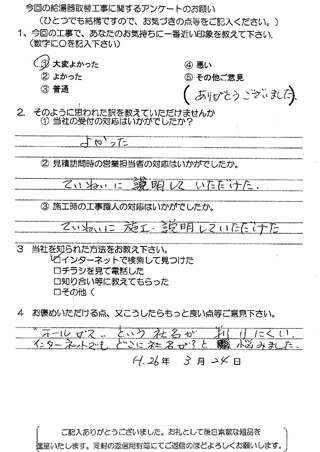 今回の給湯器取替工事に関するアンケートのお願い
(ひとつでも結構ですので、お気づきの点等をご記入ください。)
1、今回の工事で、あなたのお気持ちに一番近い印象を教えて下さい。
(数字に○を記入下さい)
① 大変よかった ④ 悪い
② よかった ⑤ その他ご意見
③ 普通 (ありがとうございました)
2. そのように思われた訳を教えていただけませんか
① 当社の受付の対応はいかがでしたか?
よかった
② 見積訪問時の営業担当者の対応はいかがでしたか。
ていねいに説明していただけた.
③ 施工時の工事職人の対応はいかがでしたか。
ていねいに施工・説明していただけた
3 当社を知られた方法をお教え下さい。
☑インターネットで検索して見つけた
□チラシを見て電話した
□知り合い等に教えてもらった
□その他(
4 お褒めいただける点、又こうしたらもっと良い点等ご意見下さい。
という社名が 判りにくい.
インターネットでも どこに社名が?と 悩みました.
H.26年 3月 24日
ご記入ありがとうございました。お礼として後日素敵な粗品を
進呈いたします。同封の返信用封筒にてご返信のほどよろしくお願いします。